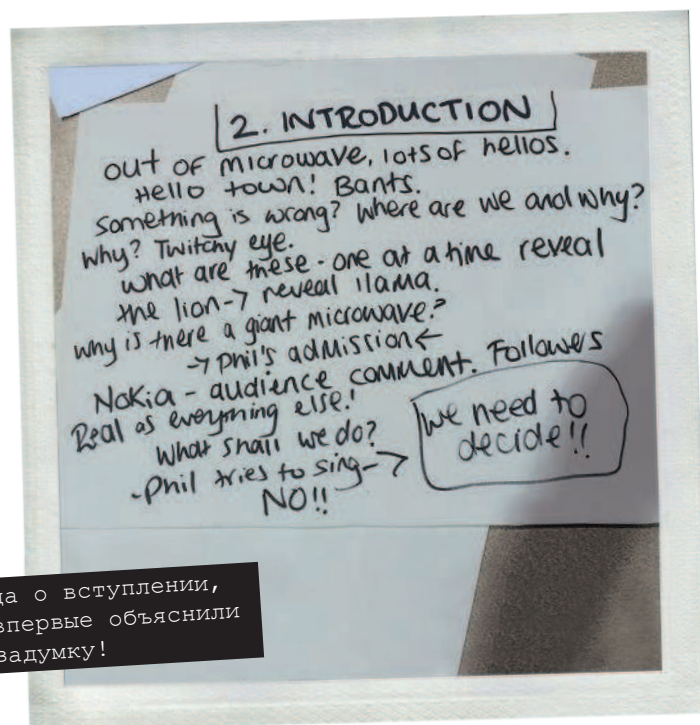 2. INTRODUCTION
out of microwave, lots of hellos.
Hello town! Bants.
Something is wrong? Where are we and why?
Why? Twitchy eye.
what are these - one at a time reveal
the lion → reveal llama.
why is there a giant microwave?
→ Phil's admission ←
Nokia - audience comment. Followers
Real as everything else!
What shall we do?
-Phil tries to sing- →
NO!!
we need to
decide!!
о вступлении,
впервые объяснили
задумку!